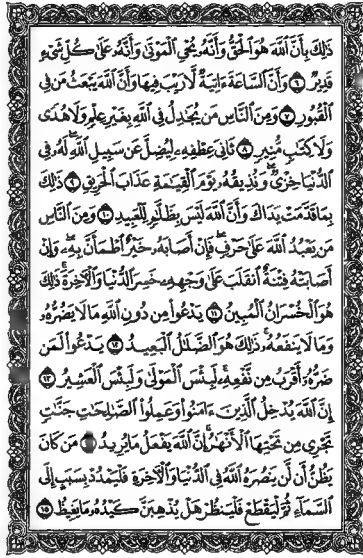 ذَٰلِكَ بِأَنَّ ٱللَّهَ هُوَ ٱلْحَقُّ وَأَنَّهُۥ يُحْىِ ٱلْمَوْتَىٰ وَأَنَّهُۥ عَلَىٰ كُلِّ شَىْءٍ
قَدِيرٌ ٦ وَأَنَّ ٱلسَّاعَةَ ءَاتِيَةٌ لَّا رَيْبَ فِيهَا وَأَنَّ ٱللَّهَ يَبْعَثُ مَن فِى
ٱلْقُبُورِ ٧ وَمِنَ ٱلنَّاسِ مَن يُجَٰدِلُ فِى ٱللَّهِ بِغَيْرِ عِلْمٍ وَلَا هُدًى
وَلَا كِتَٰبٍ مُّنِيرٍ ٨ ثَانِىَ عِطْفِهِۦ لِيُضِلَّ عَن سَبِيلِ ٱللَّهِ ۖ لَهُۥ فِى
ٱلدُّنْيَا خِزْىٌ ۖ وَنُذِيقُهُۥ يَوْمَ ٱلْقِيَٰمَةِ عَذَابَ ٱلْحَرِيقِ ٩ ذَٰلِكَ
بِمَا قَدَّمَتْ يَدَاكَ وَأَنَّ ٱللَّهَ لَيْسَ بِظَلَّٰمٍ لِّلْعَبِيدِ ١٠ وَمِنَ ٱلنَّاسِ
مَن يَعْبُدُ ٱللَّهَ عَلَىٰ حَرْفٍ ۖ فَإِنْ أَصَابَهُۥ خَيْرٌ ٱطْمَأَنَّ بِهِۦ ۖ وَإِنْ
أَصَابَتْهُ فِتْنَةٌ ٱنقَلَبَ عَلَىٰ وَجْهِهِۦ خَسِرَ ٱلدُّنْيَا وَٱلْءَاخِرَةَ ۚ ذَٰلِكَ
هُوَ ٱلْخُسْرَانُ ٱلْمُبِينُ ١١ يَدْعُوا۟ مِن دُونِ ٱللَّهِ مَا لَا يَضُرُّهُۥ
وَمَا لَا يَنفَعُهُۥ ۚ ذَٰلِكَ هُوَ ٱلضَّلَٰلُ ٱلْبَعِيدُ ١٢ يَدْعُوا۟ لَمَن
ضَرُّهُۥٓ أَقْرَبُ مِن نَّفْعِهِۦ ۚ لَبِئْسَ ٱلْمَوْلَىٰ وَلَبِئْسَ ٱلْعَشِيرُ ١٣
إِنَّ ٱللَّهَ يُدْخِلُ ٱلَّذِينَ ءَامَنُوا۟ وَعَمِلُوا۟ ٱلصَّٰلِحَٰتِ جَنَّٰتٍ
تَجْرِى مِن تَحْتِهَا ٱلْأَنْهَٰرُ ۚ إِنَّ ٱللَّهَ يَفْعَلُ مَا يُرِيدُ مَن كَانَ
يَظُنُّ أَن لَّن يَنصُرَهُ ٱللَّهُ فِى ٱلدُّنْيَا وَٱلْءَاخِرَةِ فَلْيَمْدُدْ بِسَبَبٍ إِلَى
ٱلسَّمَآءِ ثُمَّ لْيَقْطَعْ فَلْيَنظُرْ هَلْ يُذْهِبَنَّ كَيْدُهُۥ مَا يَغِيظُ ١٥